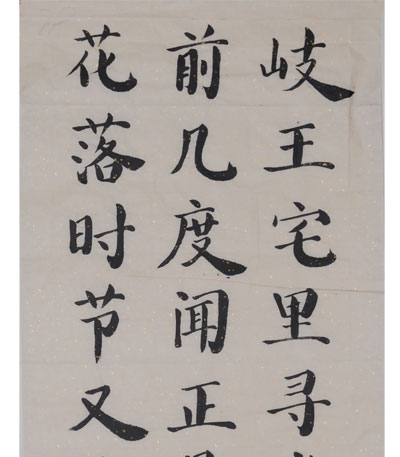 岐王宅里寻
前几度闻正
花落时节又